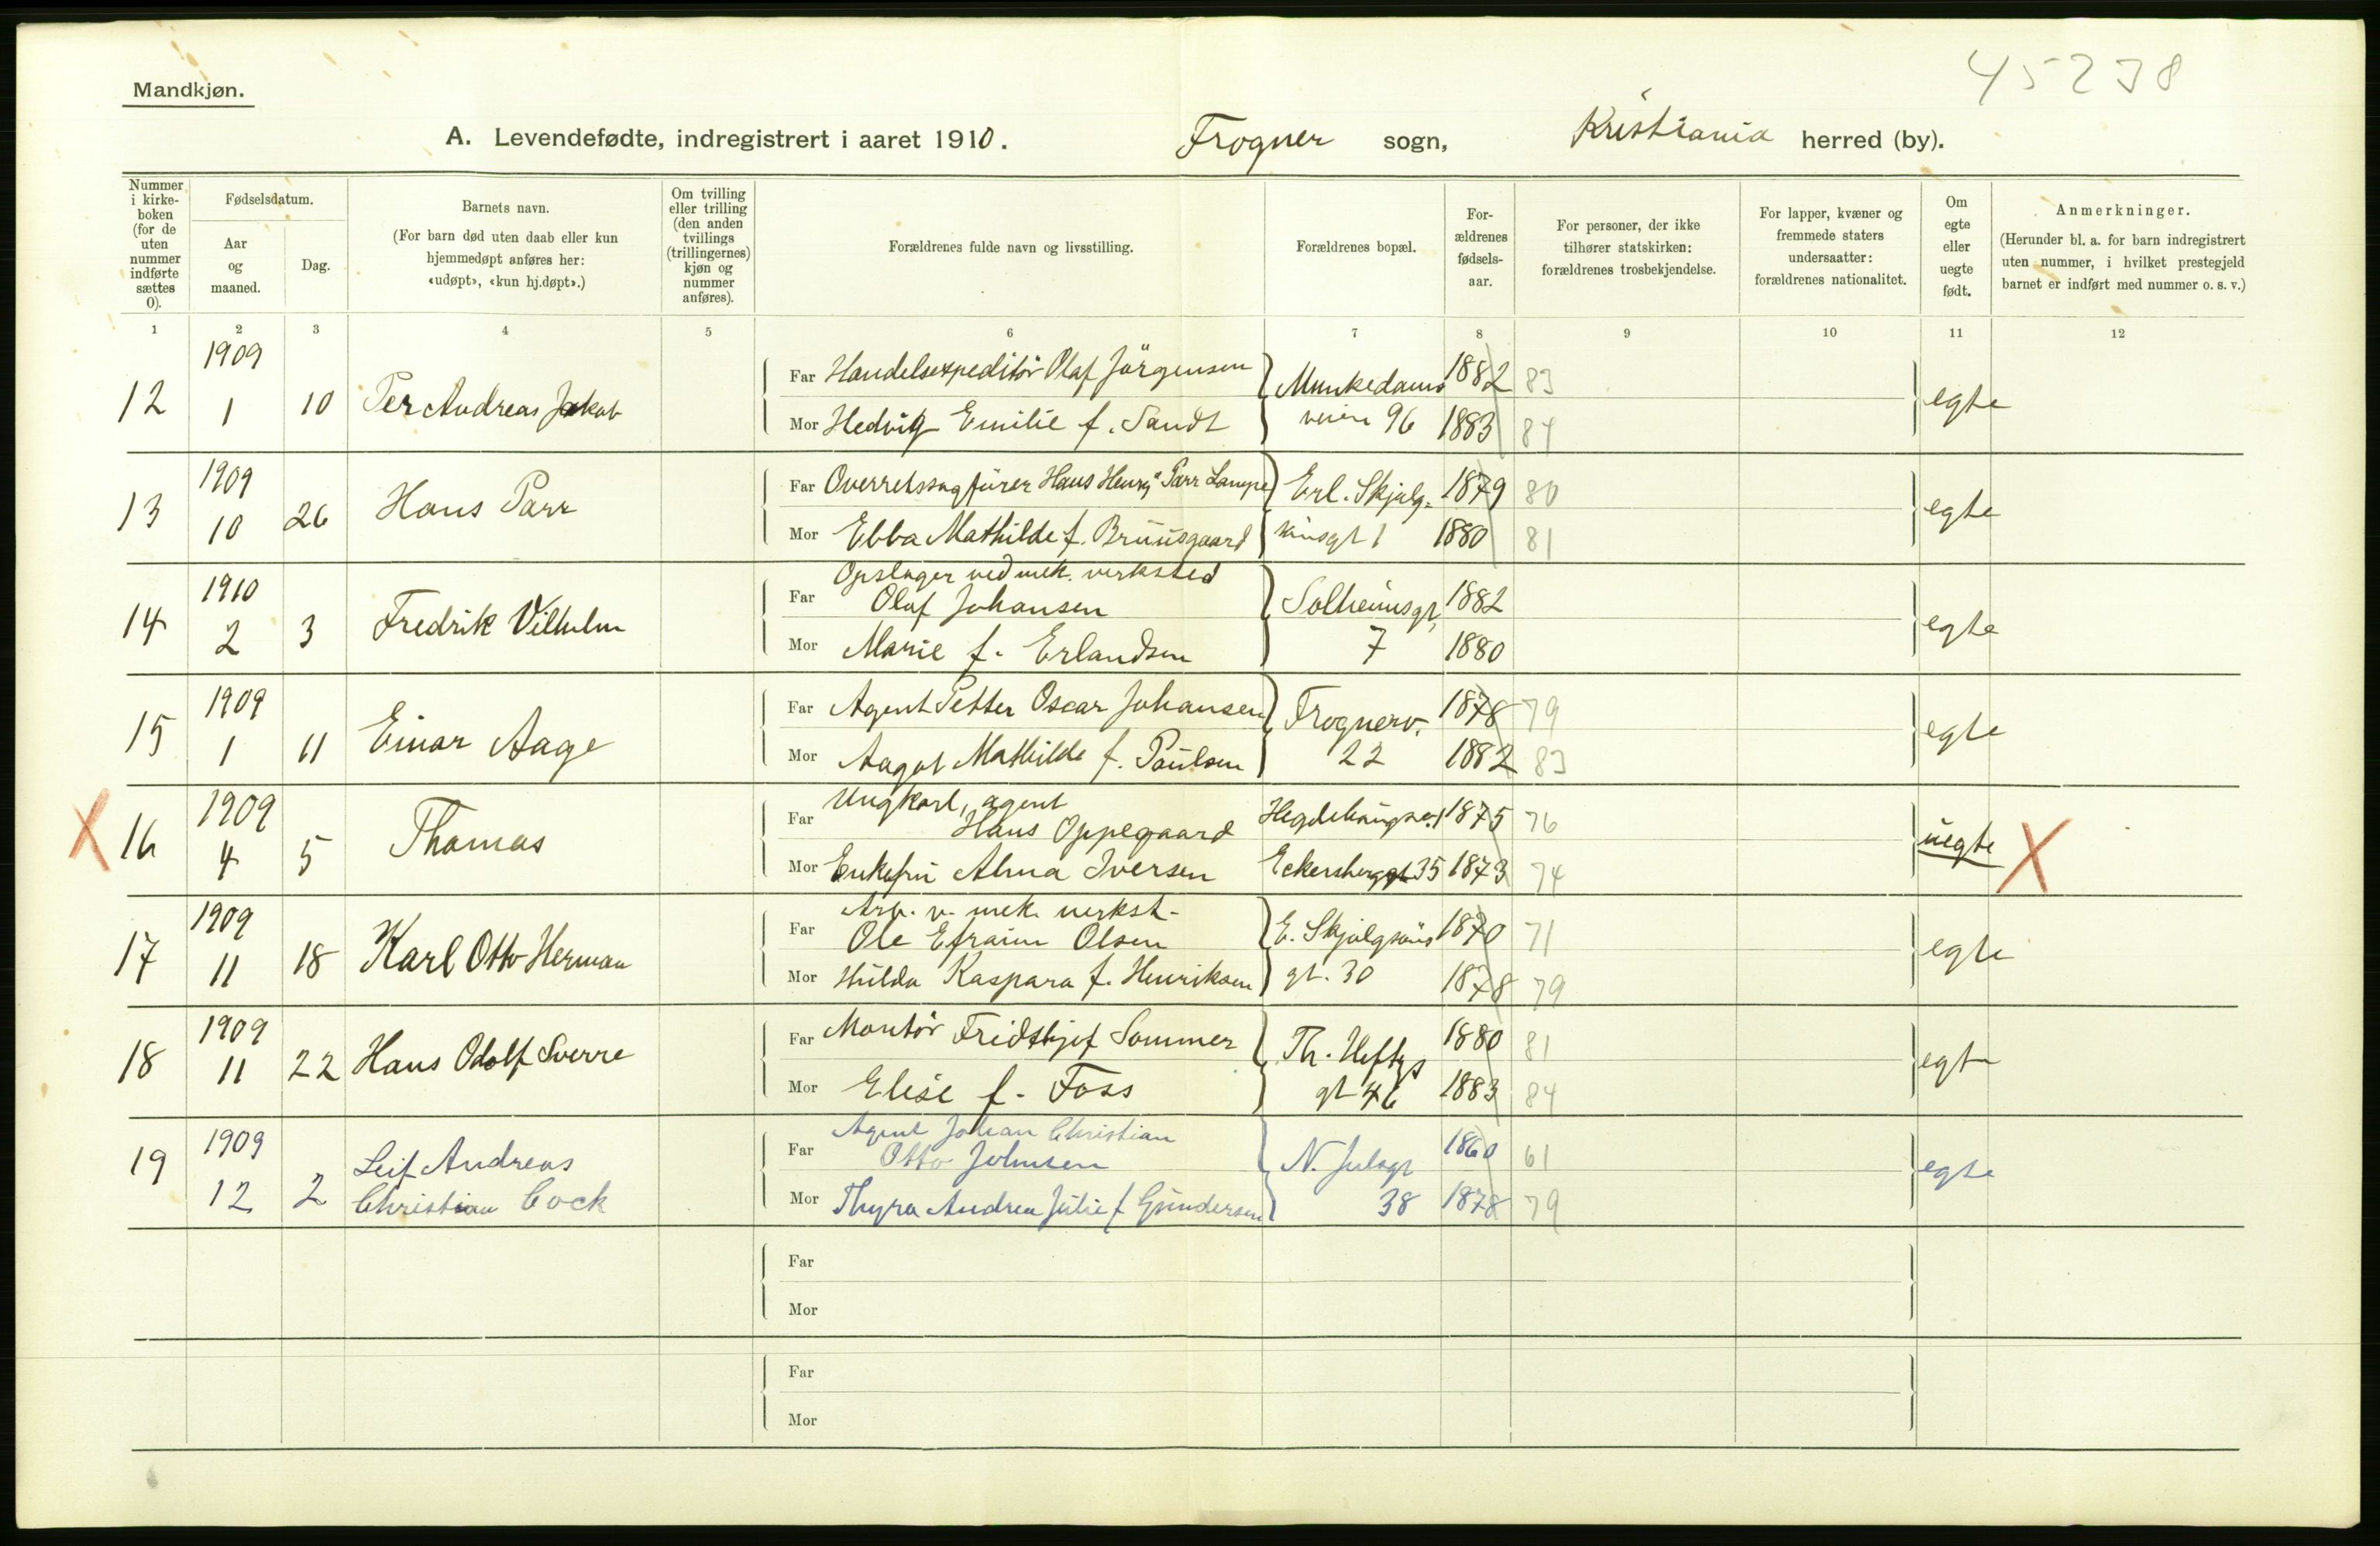 45238
Mandkjøn.
A. Levendefødte, indregistrert i aaret 1910. Frogner sogn, Kristiania herred (by).
Nummer i kirke-boken (for de uten nummer indførte sættes 0).
Fødselsdatum.
Aar og maaned.
Dag.
Barnets navn.
(For barn død uten daab eller kun hjemmedøpt anføres her: «udøpt», «kun hj.døpt».)
Om tvilling eller trilling (den anden tvillings (trillingernes) kjøn og nummer anføres).
Forældrenes fulde navn og livsstilling.
Forældrenes bopæl.
For-ældrenes fødsels-aar.
For personer, der ikke tilhører statskirken: forældrenes trosbekjendelse.
For lapper, kvæner og fremmede staters undersaatter: forældrenes nationalitet.
Om egte eller uegte født.
Anmerkninger.
(Herunder bl. a. for barn indregistrert uten nummer, i hvilket prestegjeld barnet er indført med nummer o. s. v.)
1 2 3 4 5 6 7 8 9 10 11 12
12 1909 1 10 Per Andreas Jakob
Far Handelsexpeditör Olaf Jörgensen Munkedams 1882 83
Mor Hedvig Emilie f. Sandt veien 96 1883 84 egte
13 1909 10 26 Hans Parr
Far Overretssagfürer Hans Henrij Parr Lampe Erl. Skjalg- 1879 80
Mor Ebba Mathilde f. Bruusgaard sønsgt 1 1880 81 egte
14 1910 2 3 Fredrik Vilhelm
Opslager ved mek. verksted
Far Olaf Johansen Solheimsgt, 1882
Mor Marie f. Erlandsen 7 1880 egte
15 1909 1 11 Einar Aage
Far Agent Petter Oscar Johansen Frognerv. 1878 79
Mor Aagot Mathilde f. Paulsen 22 1882 83 egte
X 16 1909 4 5 Thomas
Ungkarl, agent
Far Hans Oppegaard 1875 76
Mor Enkefru Alma Iversen Eckersberggt 35 1873 74 uegte X
17 1909 11 18 Karl Otto Herman
Arb. v. mek. verkst.
Far Ole Efraim Olsen E. Skjalgsöns 1870 71
Mor Hulda Kaspara f. Henriksen gt. 30 1878 79 egte
18 1909 11 22 Hans Odolf Sverre
Far Montör Fridthjof Sommer Th. Heftys 1880 81
Mor Elise f. Foss gt 46 1883 84 egte
19 1909 12 2 Leif Andreas
Christian Cock
Agent Johan Christian
Far Otto Johnsen N. Julsgt 1860 61
Mor Thyra Andrea Julie f Gundersen 38 1878 79 egte
Far
Mor
Far
Mor